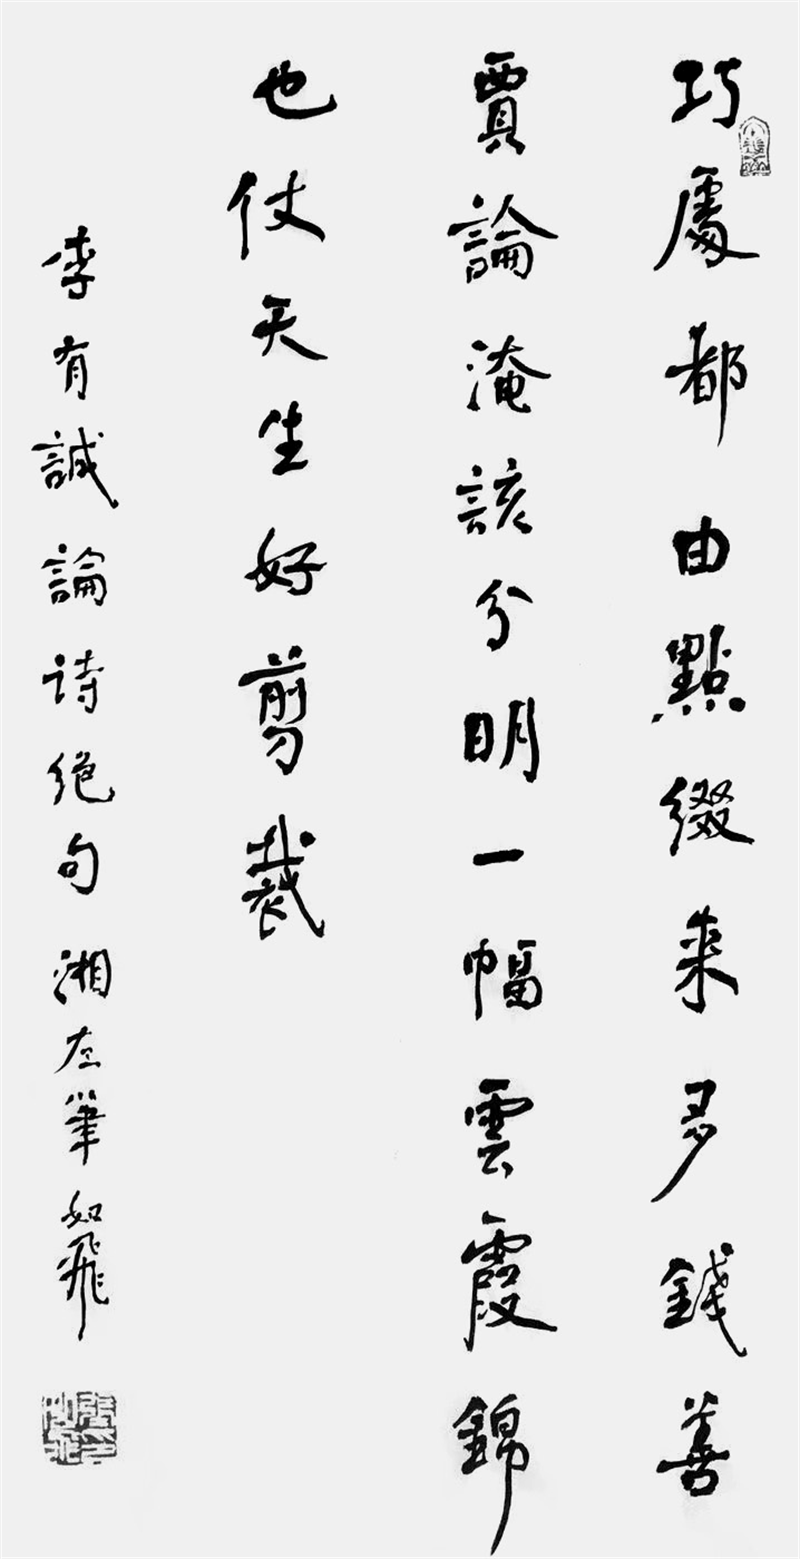 巧處都由點綴来多錢善
賈論淹該分明一幅雲霞錦
也仗天生好剪裁
李有誠論诗絕句湘左筆如飛